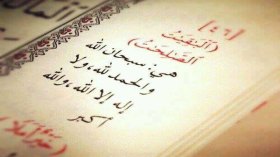 [٤٦]
(الْبَٰقِيَٰتُ
الصَّٰلِحَٰتُ)
هي: سبحان الله
والحمد لله، ولا
إله إلا الله، والله
أكبر